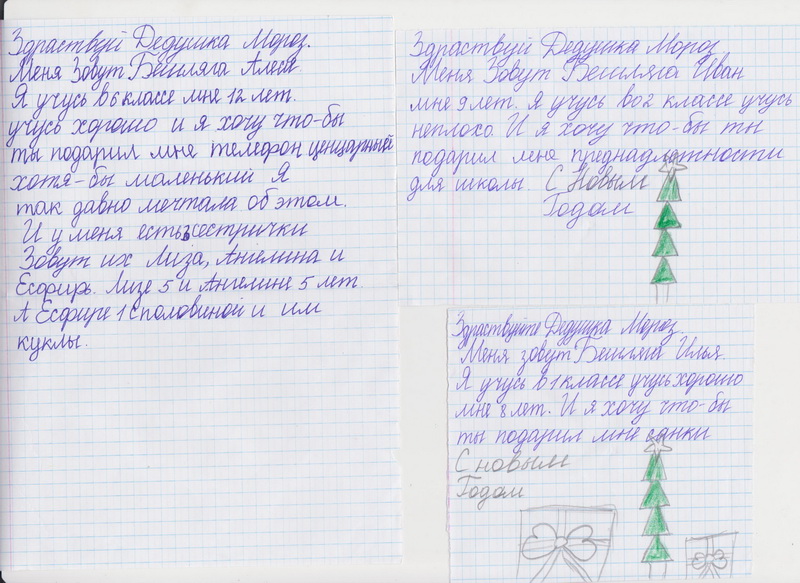 Здраствуй Дедушка Мороз.
Меня Зовут Бешляга Алеся
Я учусь в 6 классе мне 12 лет.
учусь хорошо и я хочу что-бы
ты подарил мне телефон ценцарный
хотя-бы маленький Я
так давно мечтала об этом.
И у меня есть 3 сестрички
Зовут их Лиза, Ангелина и
Есфирь. Лизе 5 и Ангелине 5 лет
А Есфире 1 с половиной и им
куклы.
Здраствуй Дедушка Мороз
Меня Зовут Бешляга Иван
мне 9 лет. Я учусь во 2 классе учусь
неплохо. И я хочу что-бы ты
подарил мне преднадлжтности
для школы. С Новым
Годом
Здраствуйте Дедушка Мороз
Меня зовут Бешляга Илья.
Я учусь в 1 классе учусь хорошо
мне 8 лет. И я хочу что-бы
ты подарил мне санки
С новым
Годом